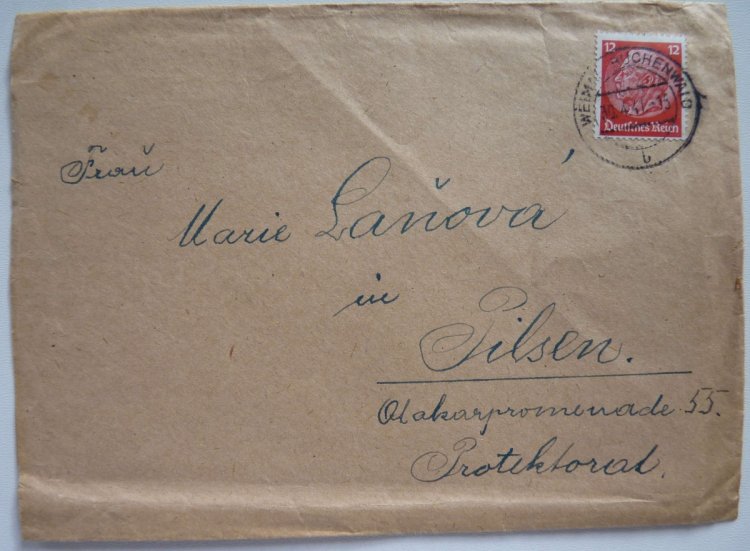 12 12
WEIMAR-BUCHENWALD
Deutsches Reich
b
Frau
Marie Laňova
in
Pilsen.
Otakarpromenade 55.
Protektorat.